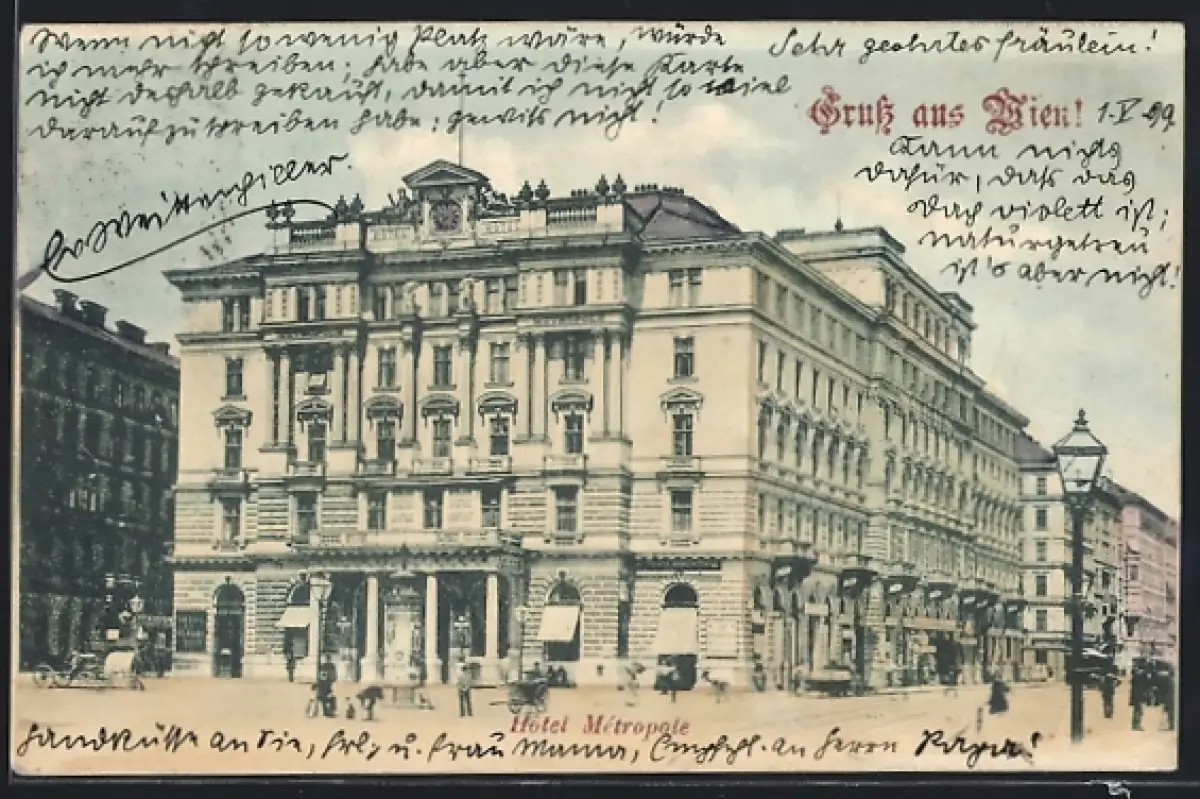 Sehr geehrtes Fräulein!
Wenn nicht so wenig Platz wäre, würde
ich mehr schreiben; habe aber diese Karte
nicht deshalb gekauft, damit ich nicht so viel
darauf zu schreiben habe; gewiss nicht!
Gruß aus Wien! 1.V.99
Kann nichts
dafür, dass das
Dach violett ist;
naturgetreu
ist's aber nicht!
HOTEL
Hôtel Métropole
Handküsse an Sie, Frl. u. Frau Mama, Empfehl. an Herrn Papa!